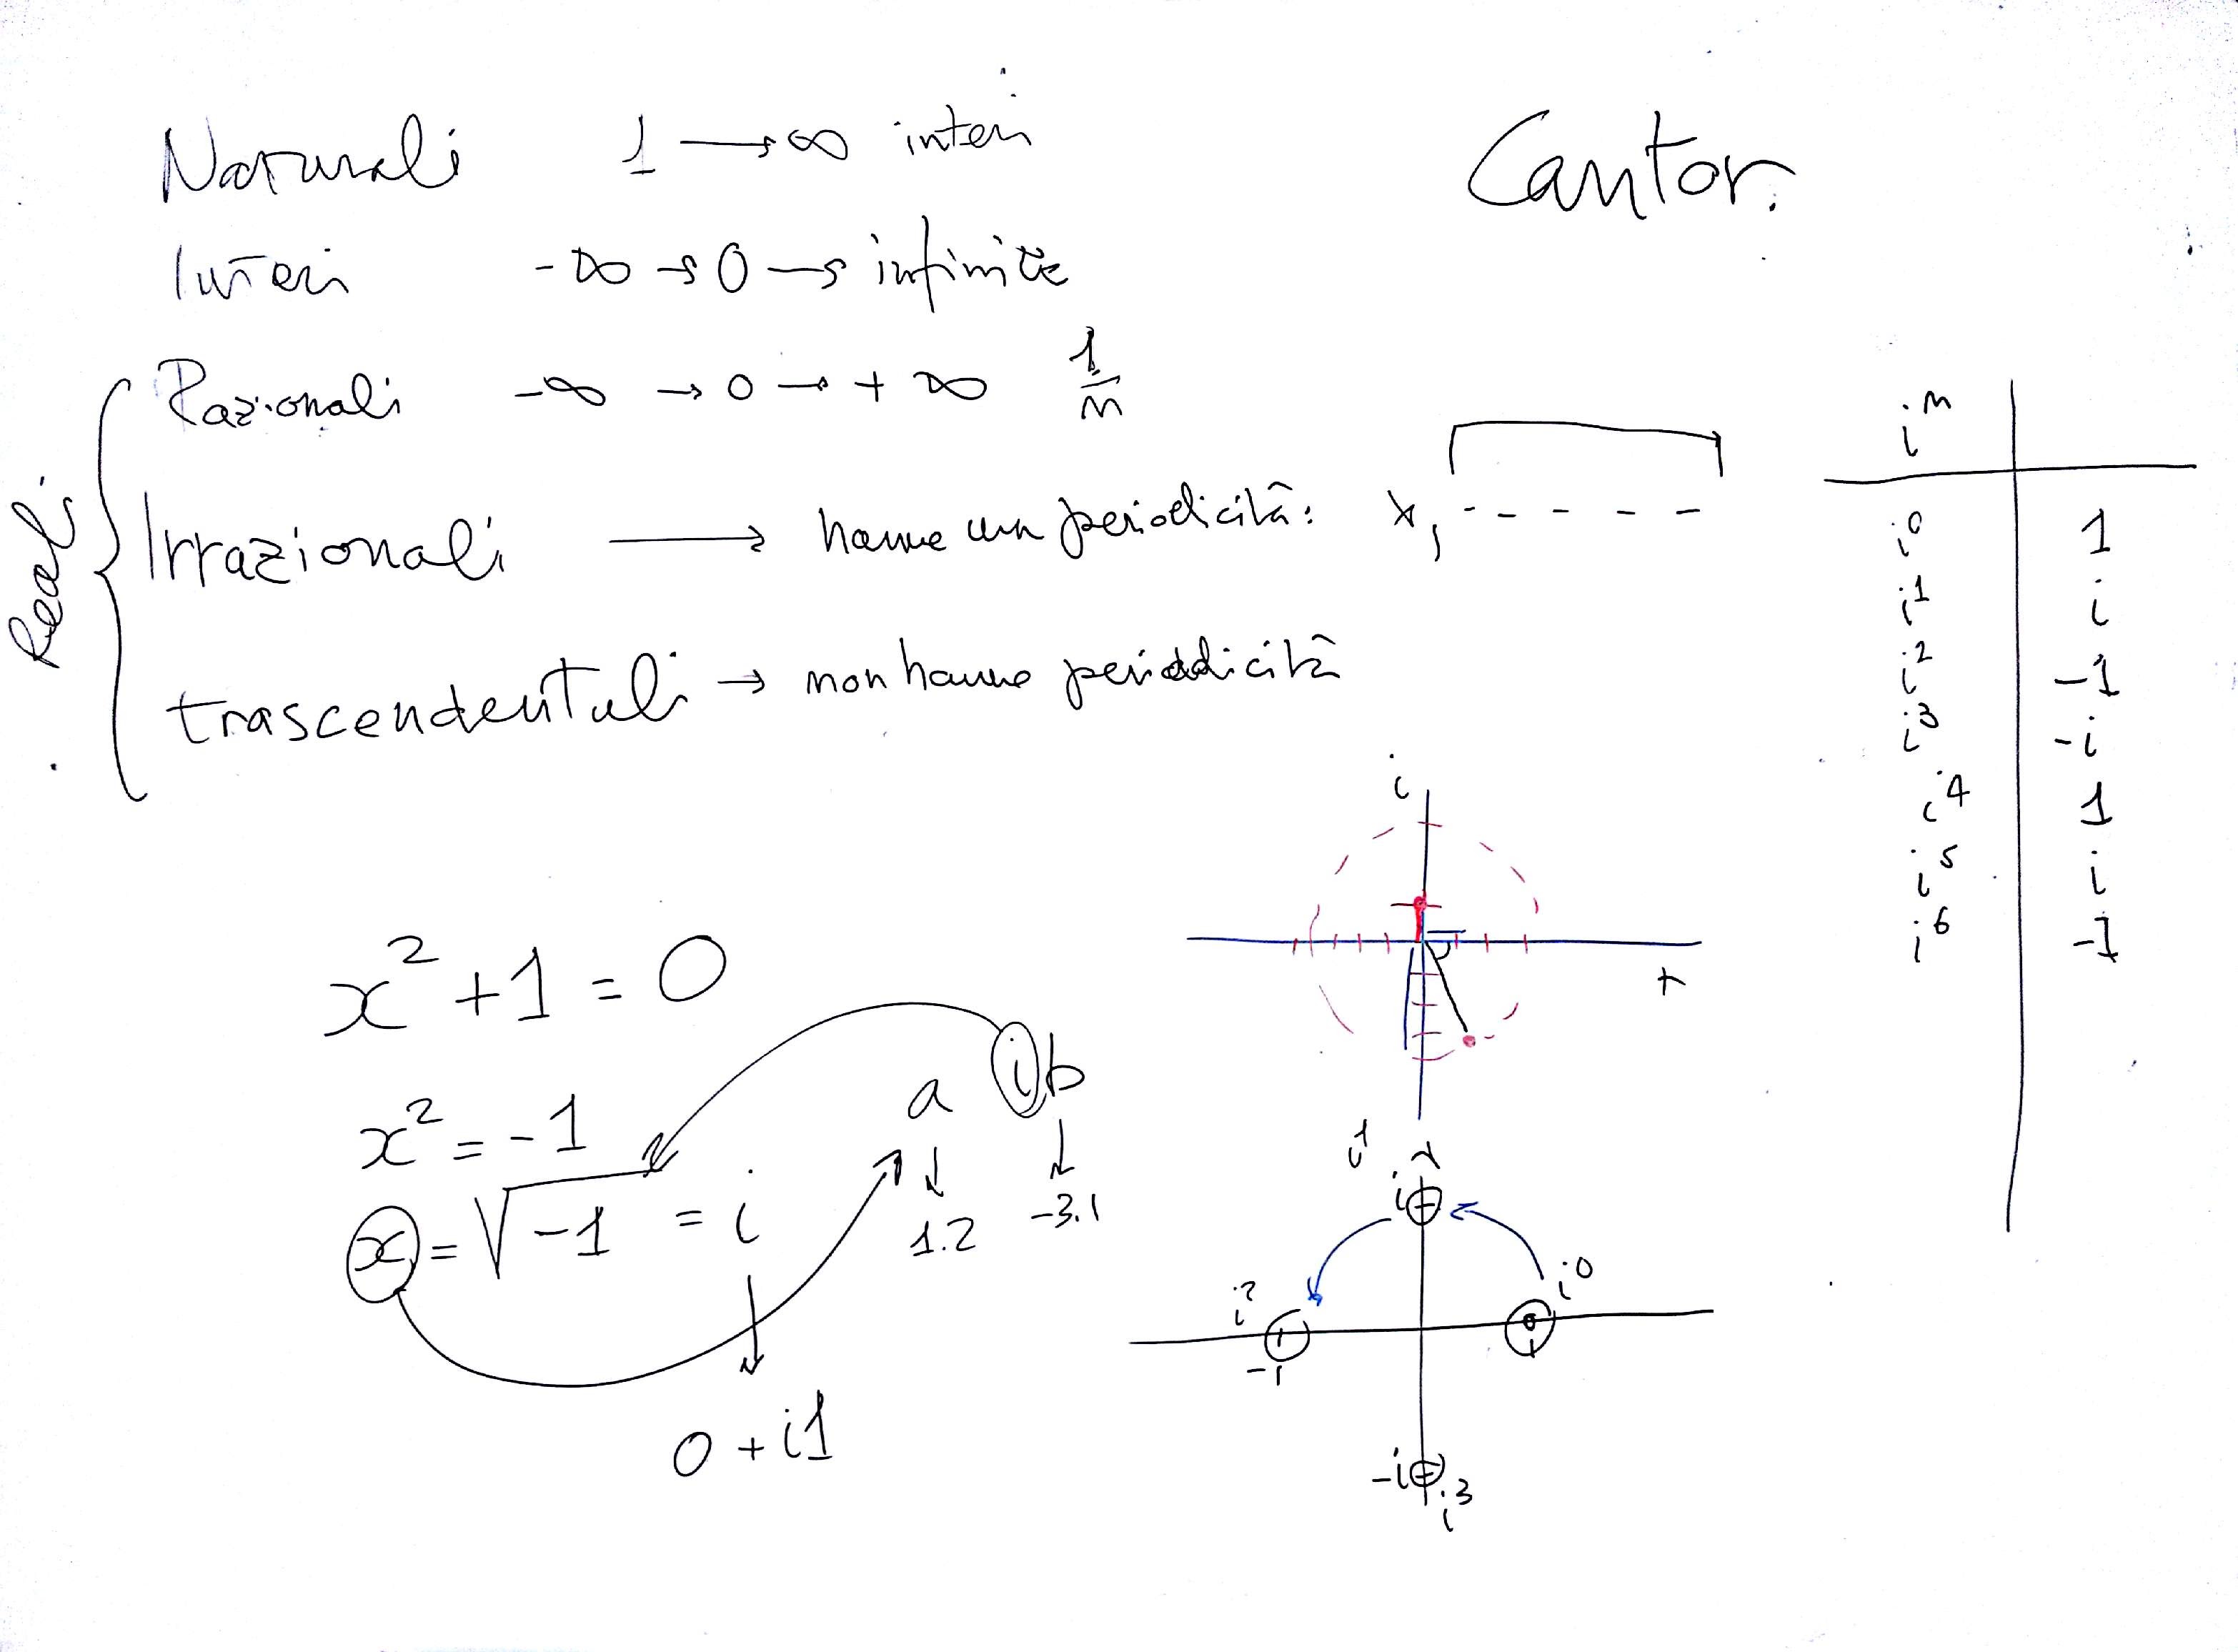 Naturali 1 → ∞ interi
Cantor.
Interi -∞ → 0 → infinite
Razionali -∞ → 0 → + ∞ 1/n
Reali
Irrazionali → hanno un periodicità: x, - - - - -
trascendentali → non hanno periodicità
i^n
i^0 1
i^1 i
i^2 -1
i^3 -i
i^4 1
i^5 i
i^6 -1
i
r
x² + 1 = 0
x² = -1
x = √-1 = i
a ib
1.2 -3.1
0 + i1
i^1
i
i^2 i^0
-1 1
-i i^3